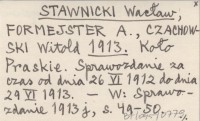 STAWNICKI Wacław,
FORMEJSTER A., CZACHOW-
SKI Witold 1913. Koło
Praskie. Sprawozdanie za
czas od dnia 26 VI 1912 do dnia
29 VI 1913. — W: Sprawo-
zdanie 1913 j, s. 49-50.